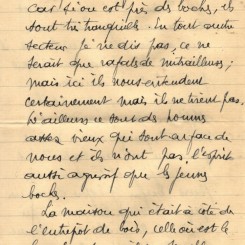 car si on est près des boches, ils
sont très tranquilles. En tout autre
secteur je ne dis pas, ce ne
serait que rafales de mitrailleuses ;
mais ici ils nous entendent
certainement mais ils ne tirent pas.
D'ailleurs ce sont des hommes
assez vieux qui sont en face de
nous et ils n'ont pas l'esprit
aussi agressif que les jeunes
boches.
La maison qui était à côté de
l'entrepôt de bois, celle où est le